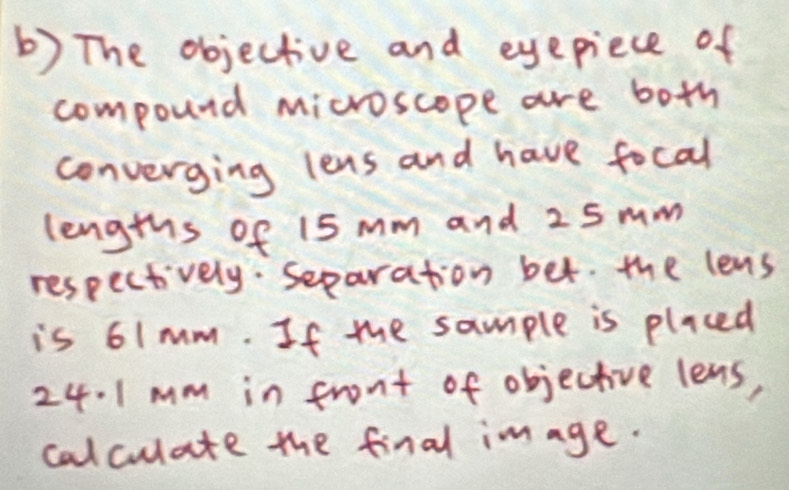 b) The objective and eyepiece of
compound microscope are both
converging lens and have focal
lengths of 15 mm and 25 mm
respectively. Separation bet. the lens
is 61 mm. If the sample is placed
24.1 mm in front of objective lens,
calculate the final image.